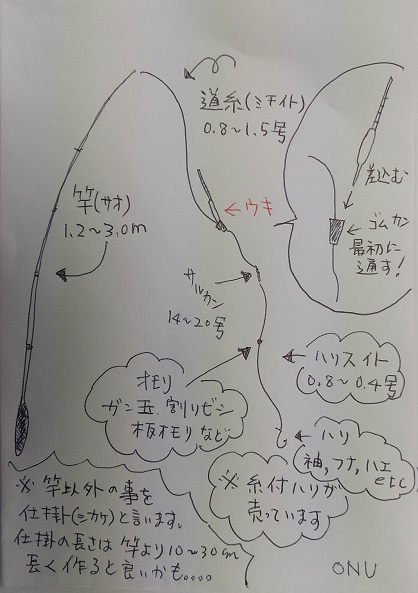 道糸(ミチイト)
0.8~1.5号
竿(サオ)
1.2~3.0m
←ウキ
差込む
ゴムカン
最初に
通す!
サルカン
14~20号
ハリスイト
0.8~0.4号
オモリ
ガン玉、割りビシ
板オモリなど
ハリ
袖,フナ,ハエ
etc
※糸付ハリが
売っています
※竿以外の事を
仕掛(シカケ)と言います。
仕掛の長さは竿より10~30cm
長く作ると良いかも。。。。
ONU